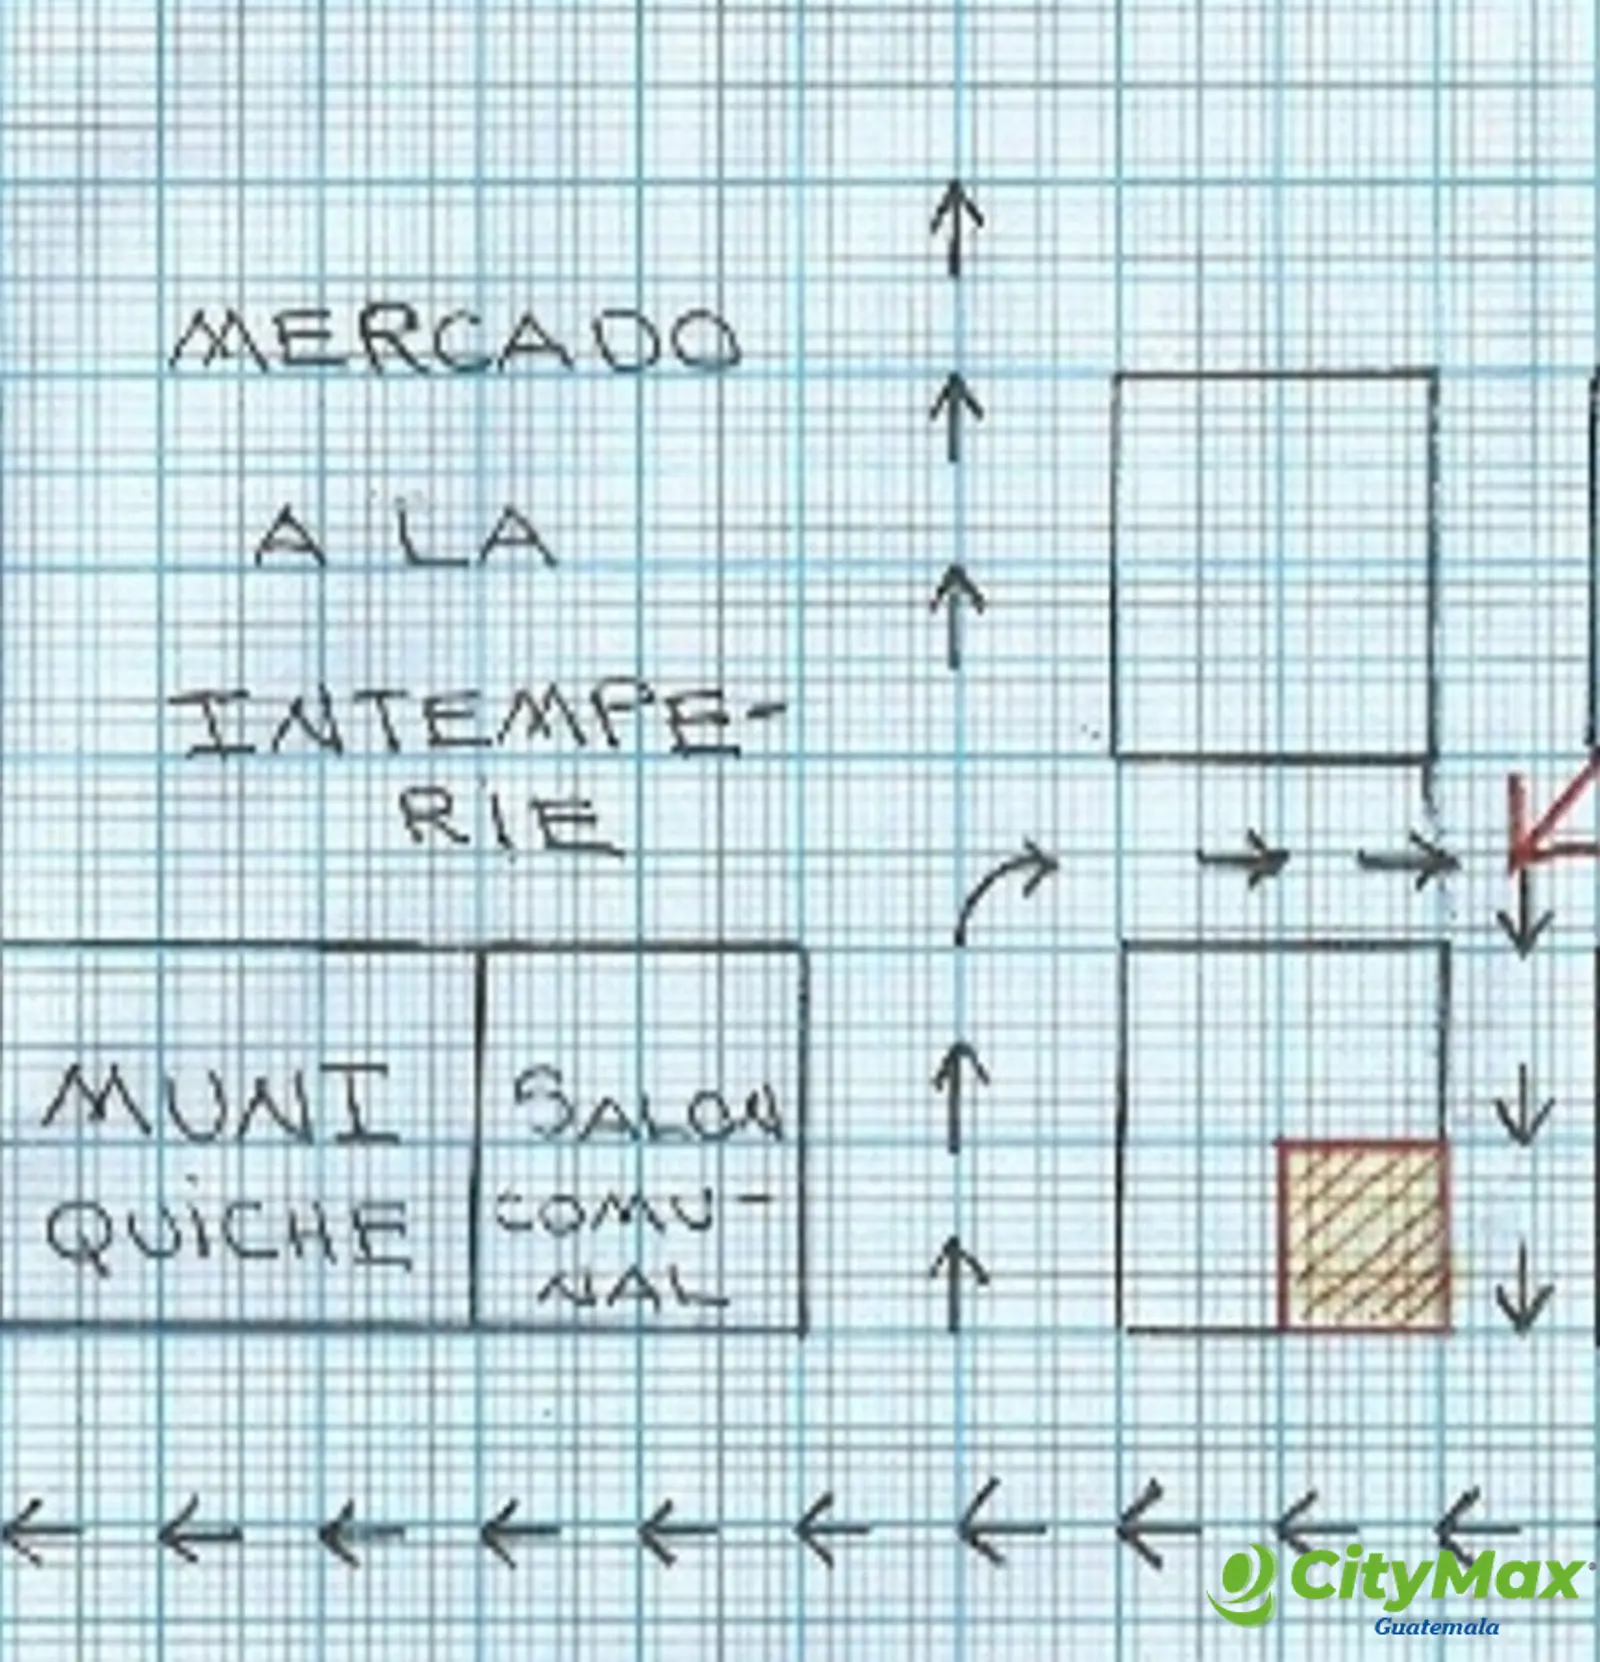 MERCADO
A LA
INTEMPE-
RIE
MUNI
QUICHE
SALON
COMU-
NAL
CityMax
Guatemala